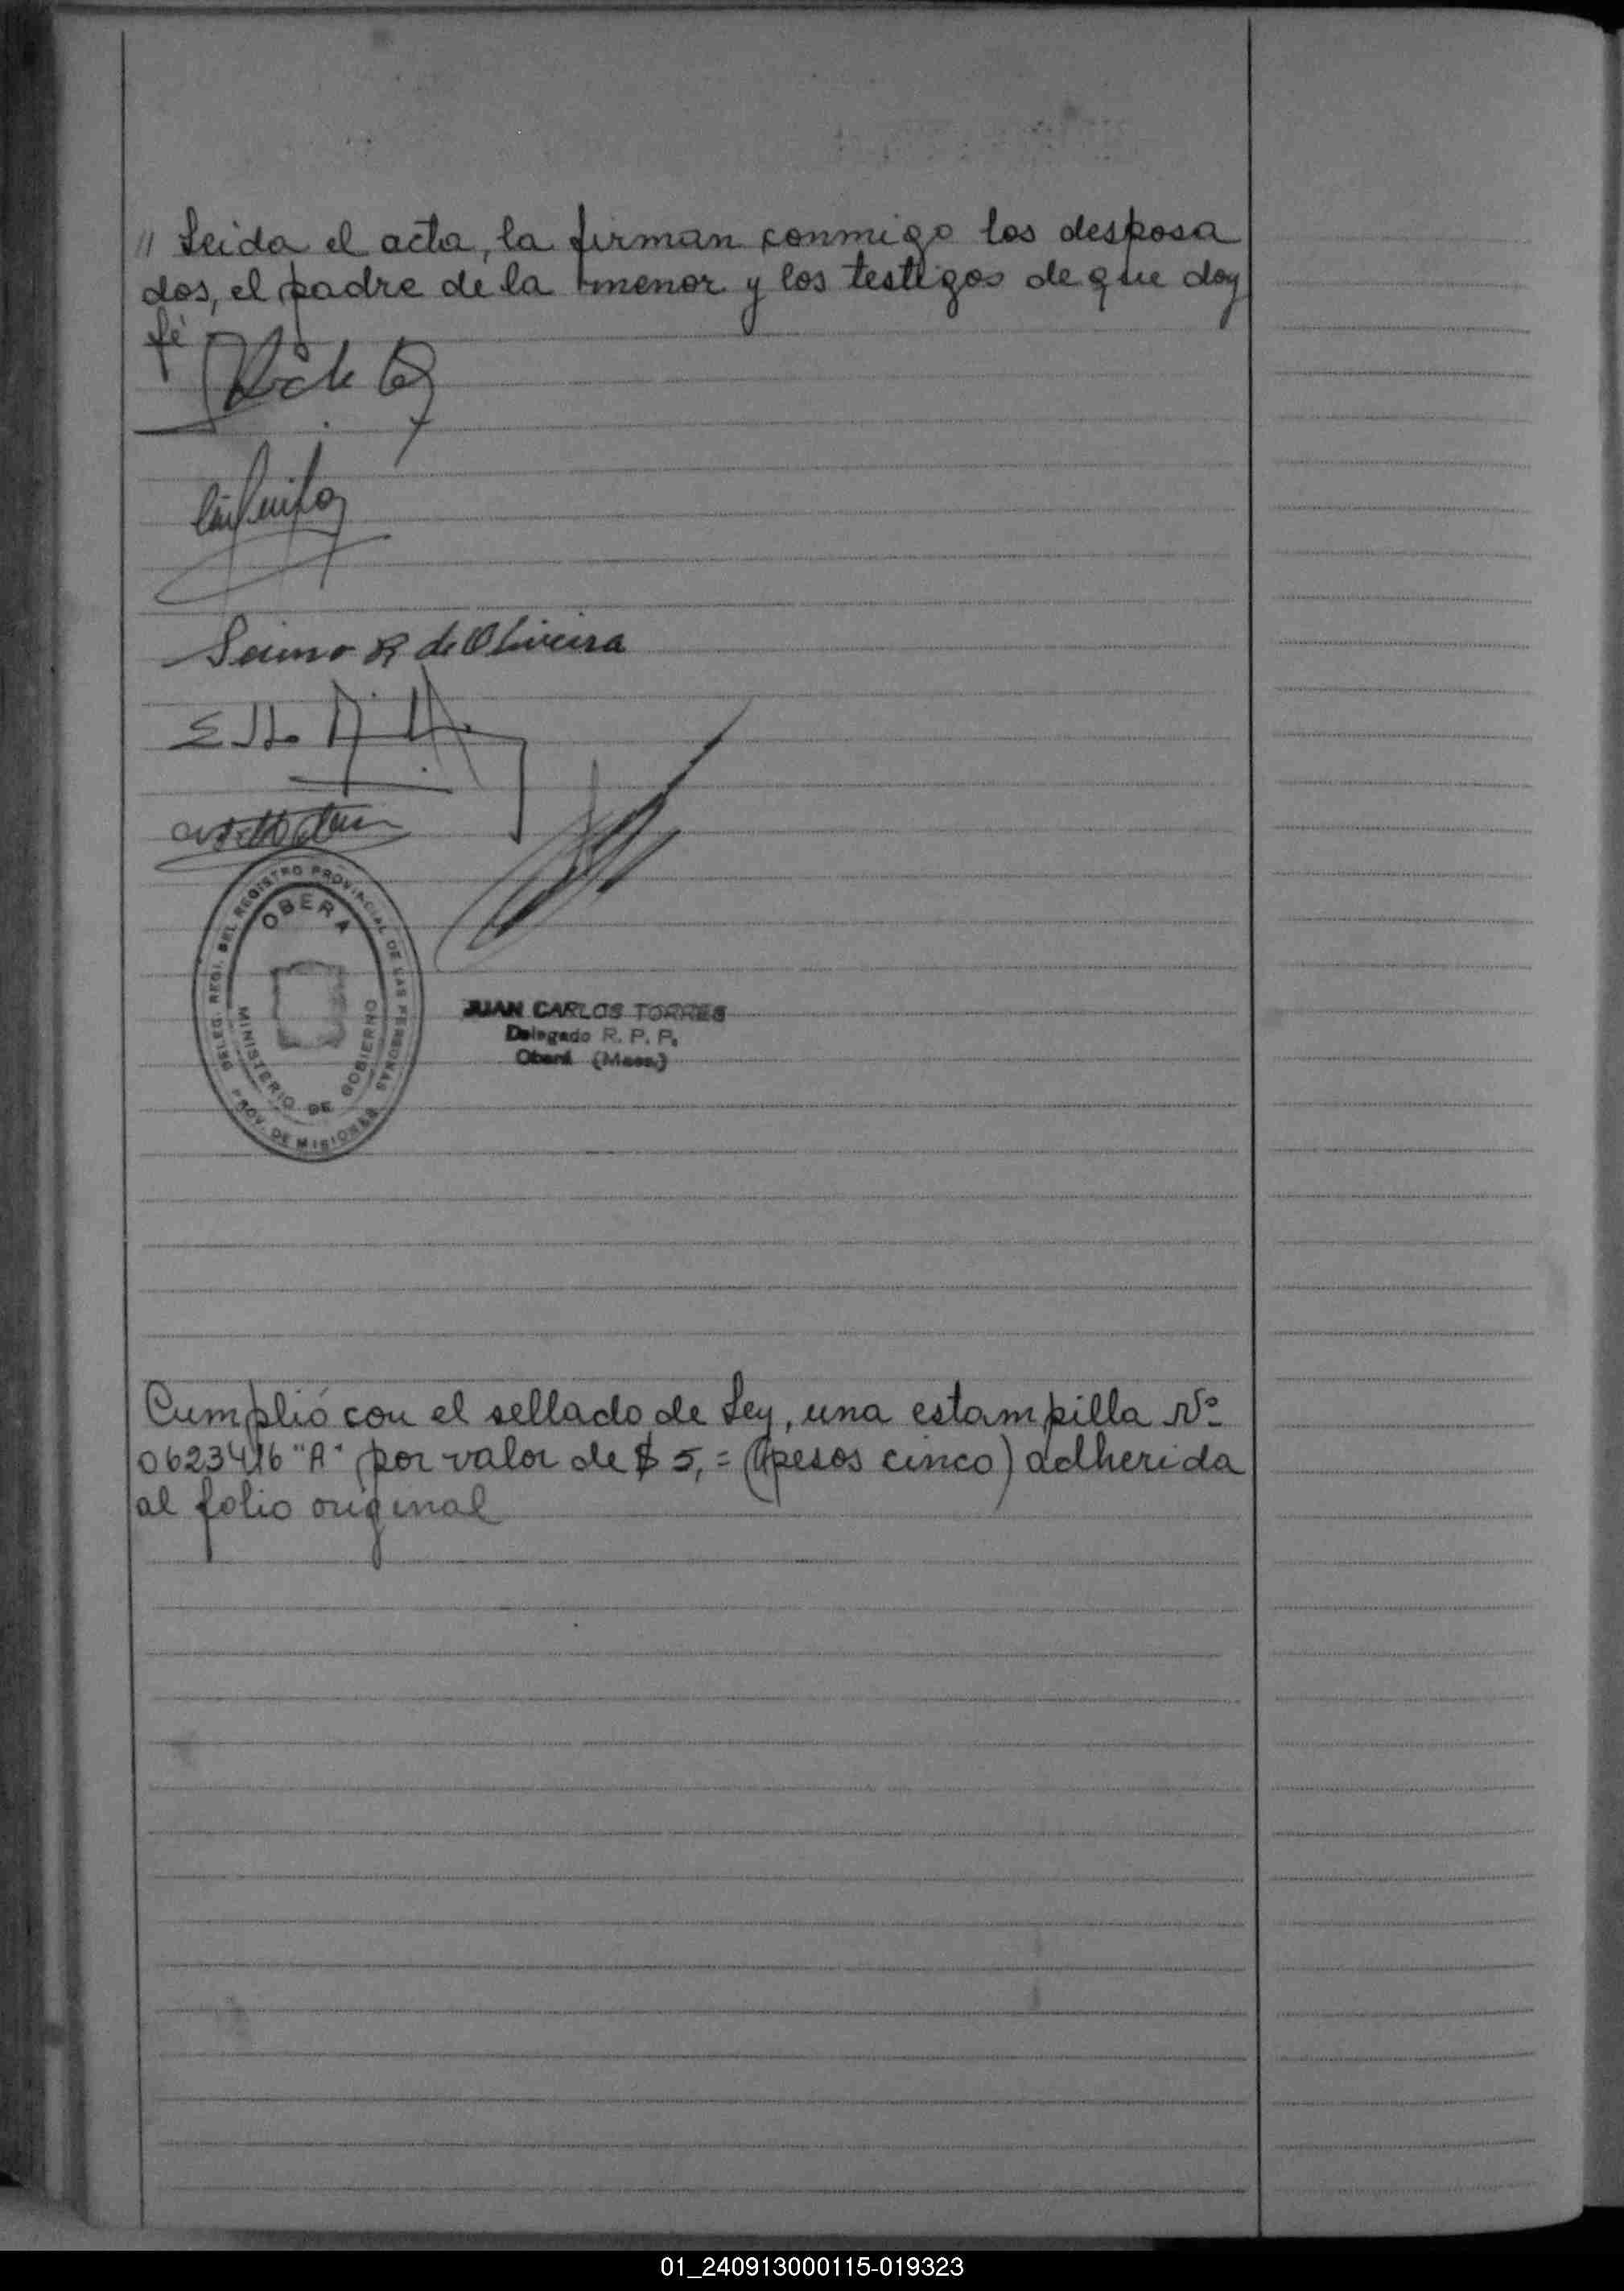 // Leida el acta, la firman conmigo los desposa
dos, el padre de la menor y los testigos de que doy
fé
R de Oliveira
DELEG. REGI. DEL REGISTRO PROVINCIAL DE LAS PERSONAS
OBERA
MINISTERIO DE GOBIERNO
PROV. DE MISIONES
JUAN CARLOS TORRES
Delegado R. P. P.
Oberá (Mnes.)
Cumplió con el sellado de Ley, una estampilla Nº
0623416 "A" por valor de $ 5,= (pesos cinco) adherida
al folio original
01_240913000115-019323